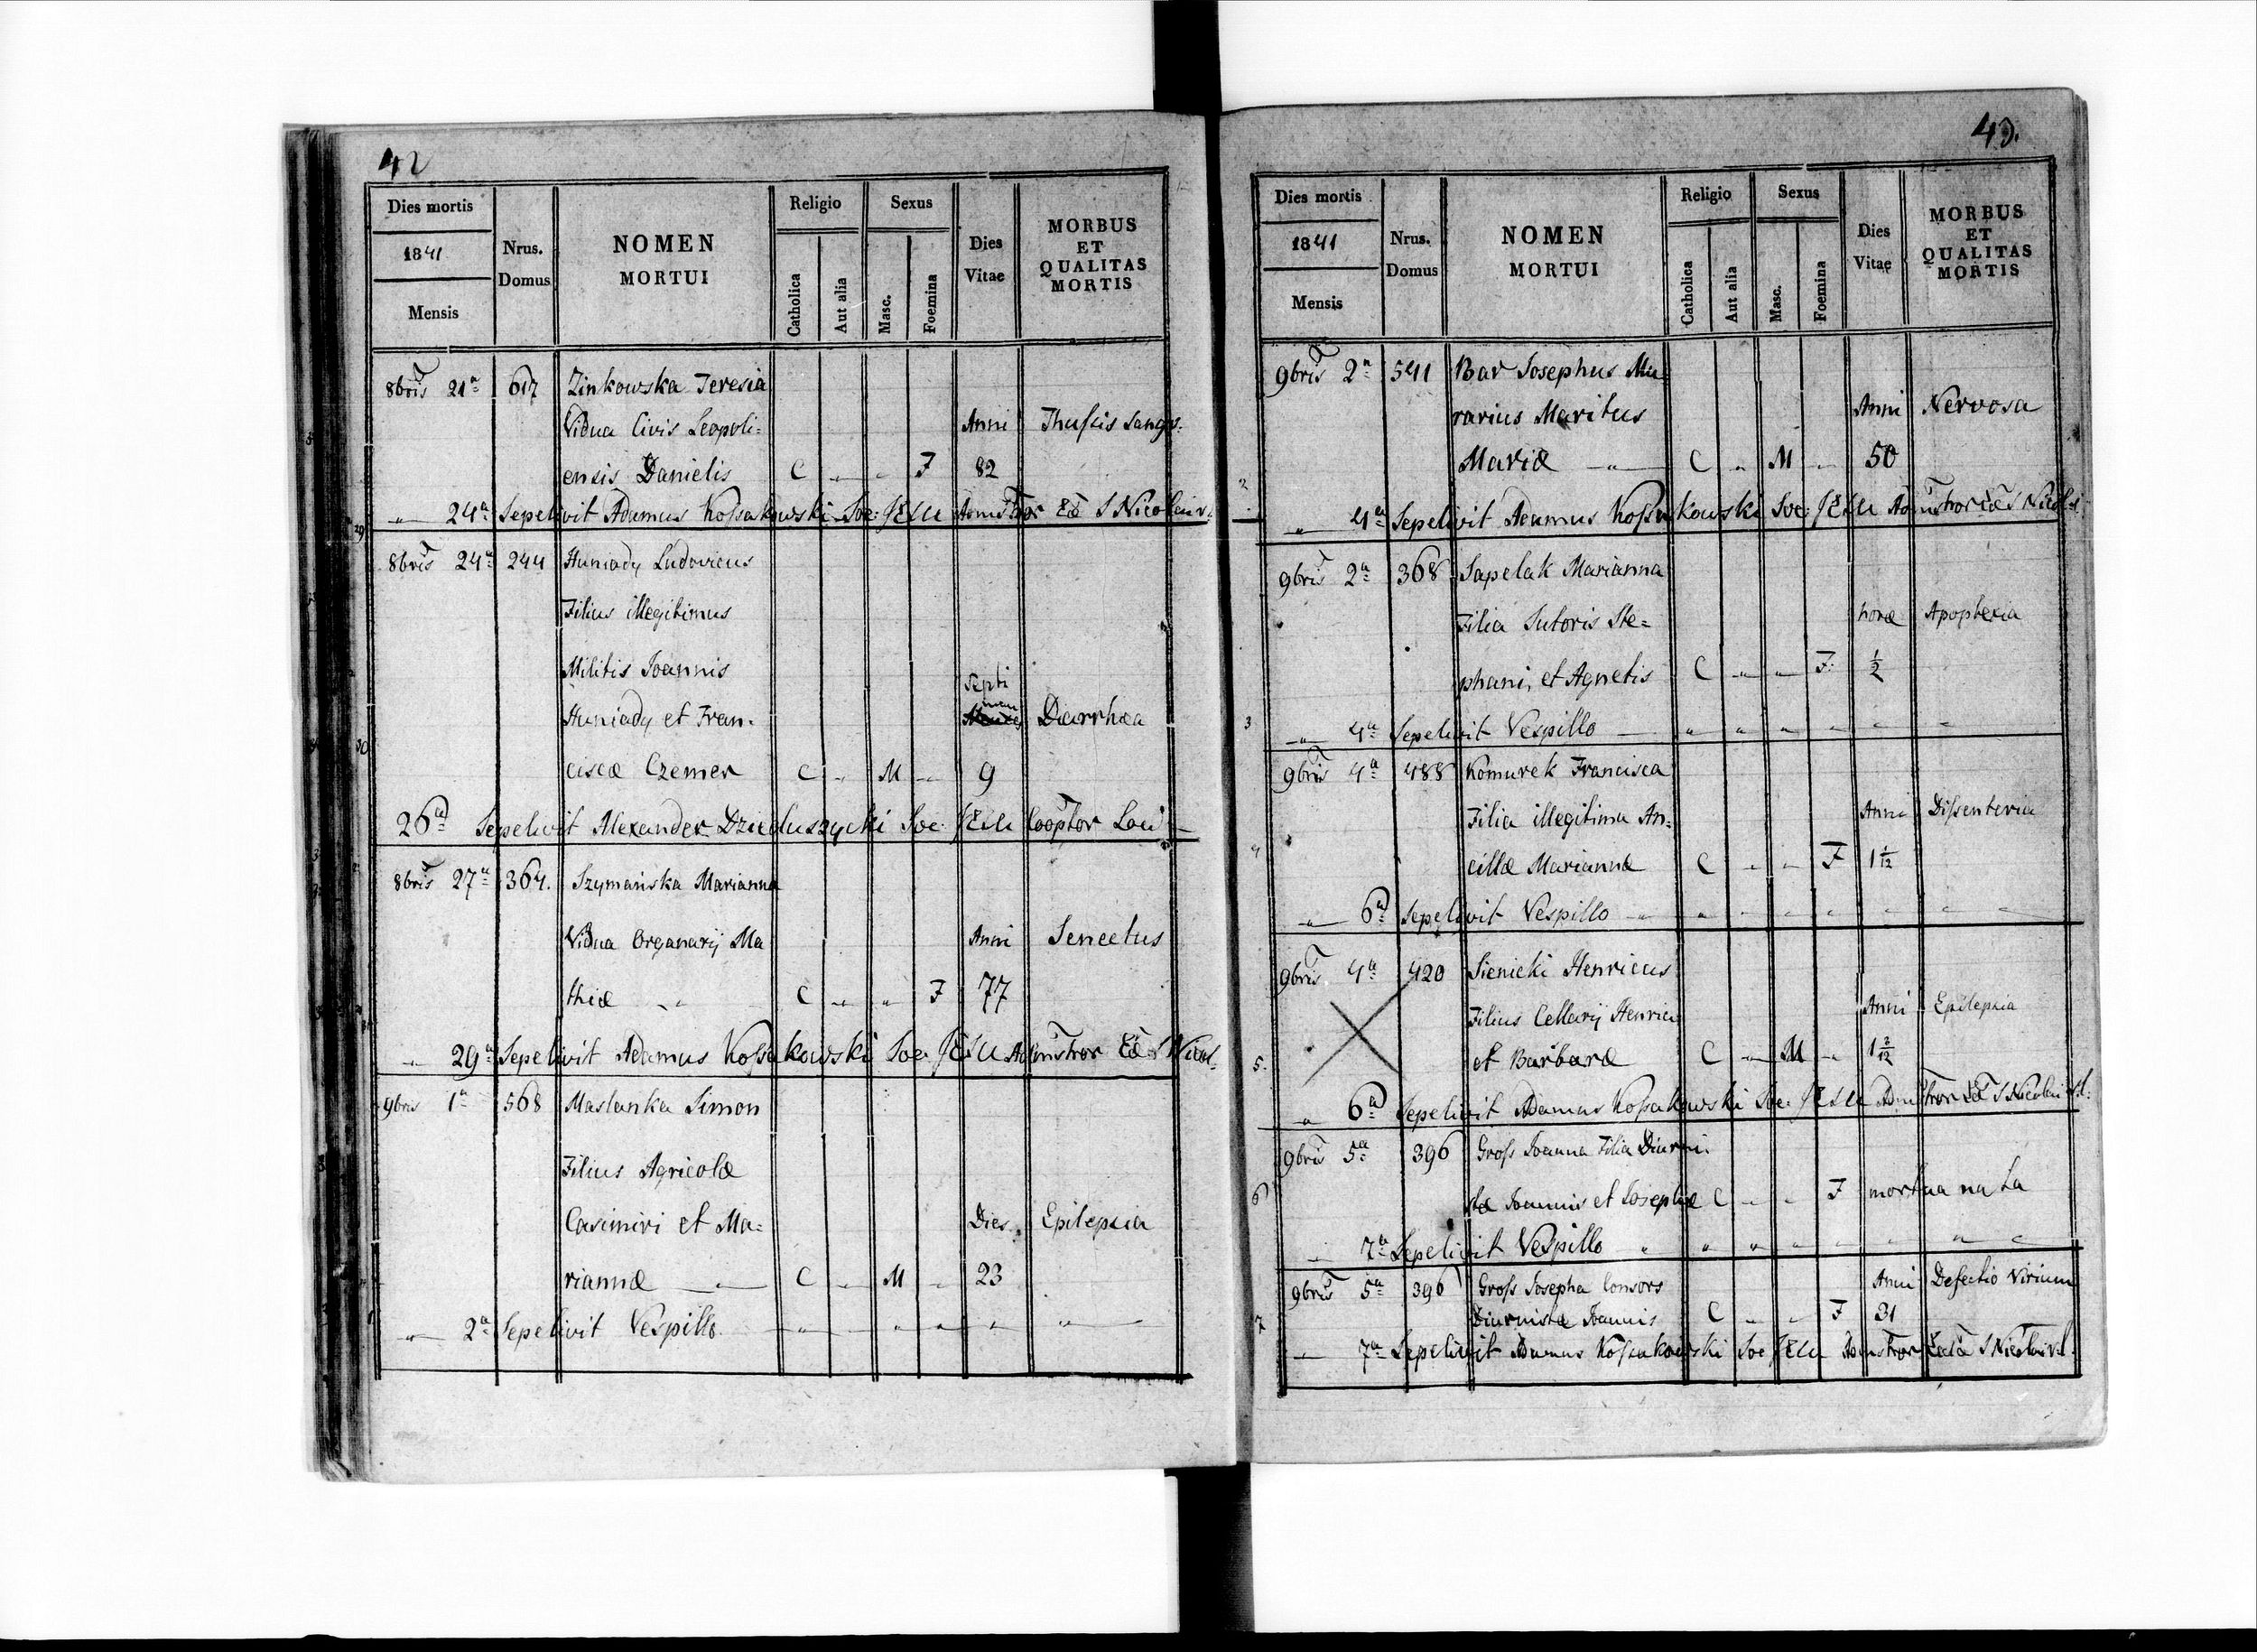 42
Dies mortis
1841
Mensis
Nrus.
Domus
NOMEN
MORTUI
Religio
Catholica
Aut alia
Sexus
Masc.
Foemina
Dies
Vitae
MORBUS
ET
QUALITAS
MORTIS
8bris 21ª 617 Zinkowska Teresia
Vidua Civis Leopoli= Anni Thusis sangv:
ensis Danielis C „ „ F 82
„ 24ª Sepelivit Adamus Kossakowski Soc: JESU Admstror Ec S Nicolai
8bris 24ª 244 Huniady Ludovicus
Filius illegitimus
Militis Joannis
Septi
Huniady et Fran= man Diarrhæa
ciscæ Czemer C „ M „ 9
26ª Sepelivit Alexander Dzieduszycki Soc: JESU Cooptor Loci
8bris 27ª 364. Szymańska Marianna
Vidua Organarij Ma Anni Senectus
thiæ „ C „ „ F 77
„ 29ª Sepelivit Adamus Kossakowski Soc JESU Admstror Ec S Nicol
9bris 1ª 568 Maslanka Simon
Filius Agricolæ
Casimiri et Ma= Dies Epilepsia
riannæ „ C „ M „ 23
„ 2ª Sepelivit Vespillo „ „ „ „ „
43.
Dies mortis
1841
Mensis
Nrus.
Domus
NOMEN
MORTUI
Religio
Catholica
Aut alia
Sexus
Masc.
Foemina
Dies
Vitae
MORBUS
ET
QUALITAS
MORTIS
9bris 2ª 541 Bar Josephus Mu
rarius Maritus Anni Nervosa
Mariæ „ C „ M „ 50
2
„ 4ª Sepelivit Adamus Kossakowski Soc: JESU Admstror Ec S Nicol
9bris 2ª 368 Sapelak Marianna
Filia Sutoris Ste= horæ Apoplexia
phani, et Agnetis C „ „ F: ½
3 „ 4ª Sepelivit Vespillo „ „ „ „ „ „
9bris 4ª 488 Komurek Francisca
Filia illegitima An= Anni Dissenteria
4 cillæ Mariannæ C „ „ F 1 1/12
„ 6ª Sepelivit Vespillo „ „ „ „ „ „ „
9bris 4ª 420 Sienicki Henricus
Filius Cellarij Henrici Anni Epilepsia
5. et Barbaræ C „ M „ 1 2/12
„ 6ª Sepelivit Adamus Kossakowski Soc: JESU Admstror Ec S Nicolai
9bris 5ª 396 Gross Joanna Filia Diurni=
6 stæ Joannis et Josephæ C „ „ F mortua nata
„ 7ª Sepelivit Vespillo „ „ „ „ „ „ „
9bris 5ª 396 Gross Josepha Consors Anni Defectio Virium
7 Diurnistæ Joannis C „ „ F 31
„ 7ª Sepelivit Adamus Kossakowski Soc JESU Admstror S Nicolai